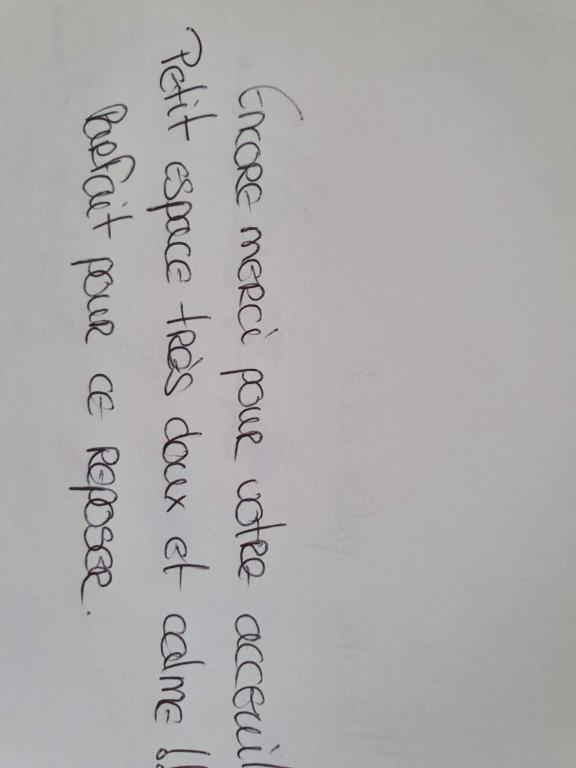 Encore merci pour votre acceuil
Petit espace très doux et calme !!
Parfait pour ce reposer.